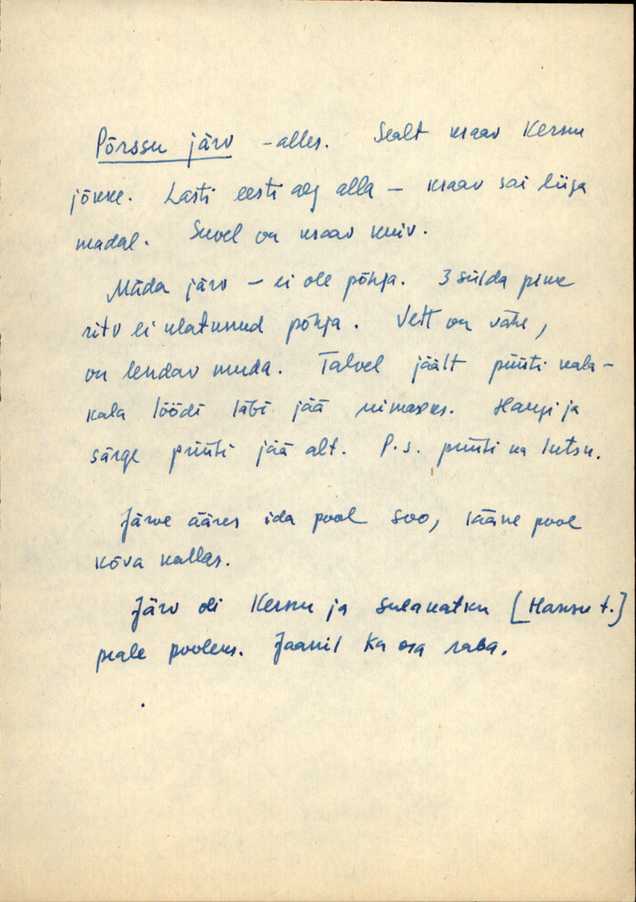 Põrssu järv - alles. Sealt kraav Kernu
jõkke. Lasti eesti aeg alla - kraav sai liiga
madal. Suvel on kraav kuiv.
Mäda järv - ei ole põhja. 3 sülda pikk
ritv ei ulatunud põhja. Vett on vähe,
on lendav muda. Talvel jäält püüti kala -
kala löödi läbi jää uimaseks. Haugi ja
särge püüti jää alt. P.s. püüti ka lutsu.
Järve ääres ida pool soo, lääne pool
kõva kallas.
Järv oli Kernu ja Sulakatku [Hansu t.]
peale pooleks. Jaanil ka osa raba.